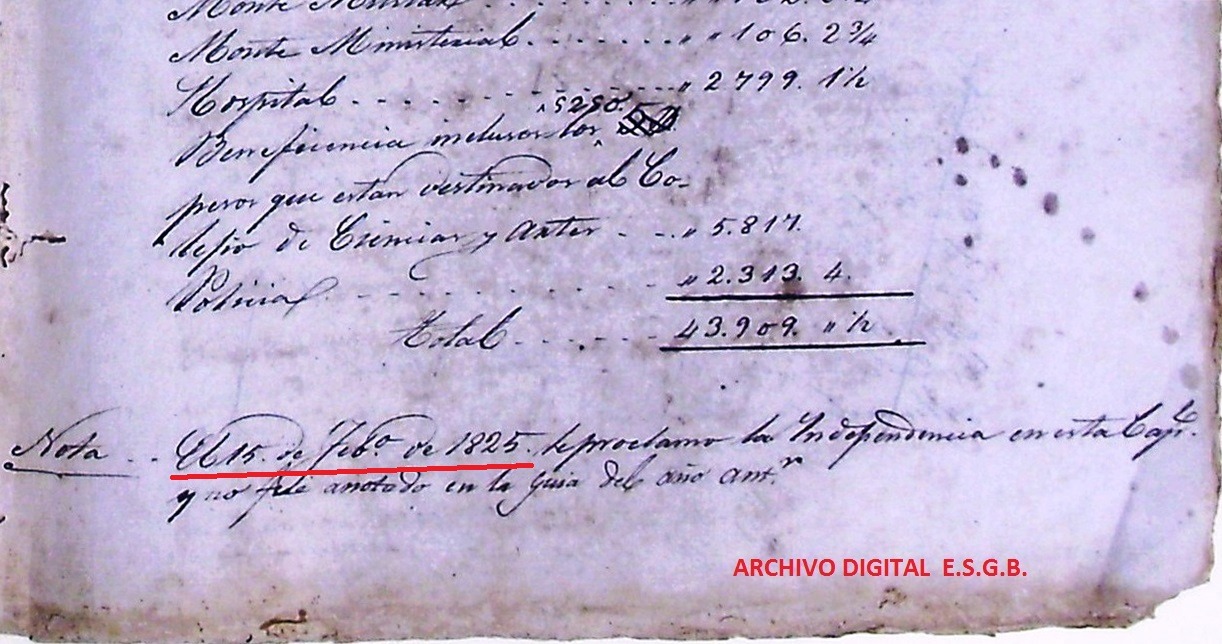 Monte Militar . . . . . . . .
Monte Ministerial . . . . . . . . " " 106. 2 3/4
Hospital . . . . . . . . . . " 2799. 1 1/2
5290.
Beneficiencia inclusos los
pesos que estan destinados al Co-
lejio de Ciencias y Artes - - . " 5.817.
Policia . . . . . . . . " 2.313. 4.
Total . . . . . . 43.909. " 1/2
Nota . . El 15. de Febo. de 1825. se proclamo la Independencia en esta Capl.
y no fué anotado en la guia del año antr.
ARCHIVO DIGITAL E.S.G.B.